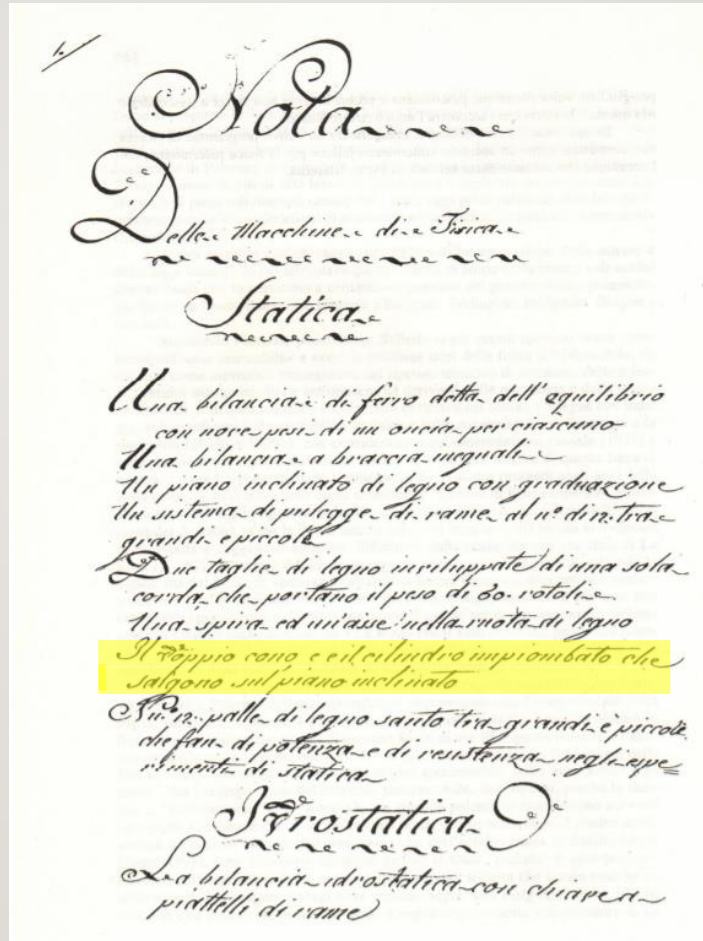 1.
Nota
Delle Macchine di Fisica
Statica
Una bilancia di ferro detta dell' equilibrio
con nove pesi di un oncia per ciascuno
Una bilancia a braccia ineguali
Un piano inclinato di legno con graduazione
Un sistema di pulegge di rame al n.º di 12. tra
grandi e piccole
Due taglie di legno inviluppate di una sola
corda che portano il peso di 60. rotoli
Una spira ed un'asse nella ruota di legno
Il doppio cono e il cilindro impiombato che
salgono sul piano inclinato
Nu.º 12. palle di legno santo tra grandi e piccole
che fan di potenza e di resistenza negli espe=
rimenti di statica
Idrostatica
La bilancia idrostatica con due
piattelli di rame